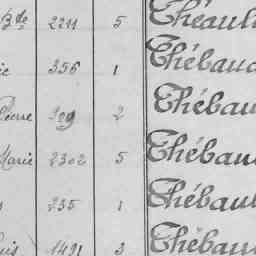 Bte 2211 5 Théaul
ie 356 1 Thébau
Pierre 309 2 Thébau
Marie 2302 5 Thébau
235 1 Thébau
uis 1491 3 Thébau